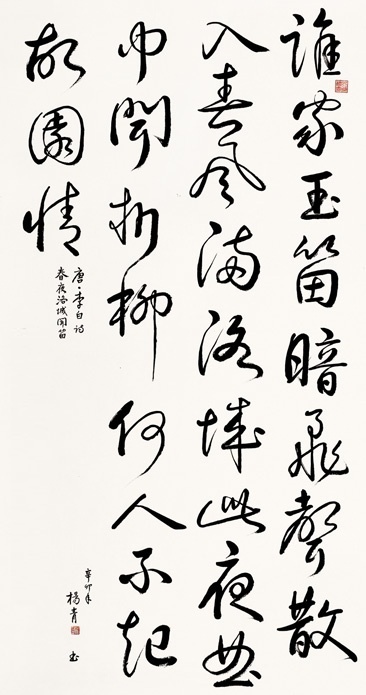 誰家玉笛暗飛聲散
入春風滿洛城此夜曲
中聞折柳何人不起
故園情
唐·李白詩
春夜洛城聞笛
辛卯年
楊青 书